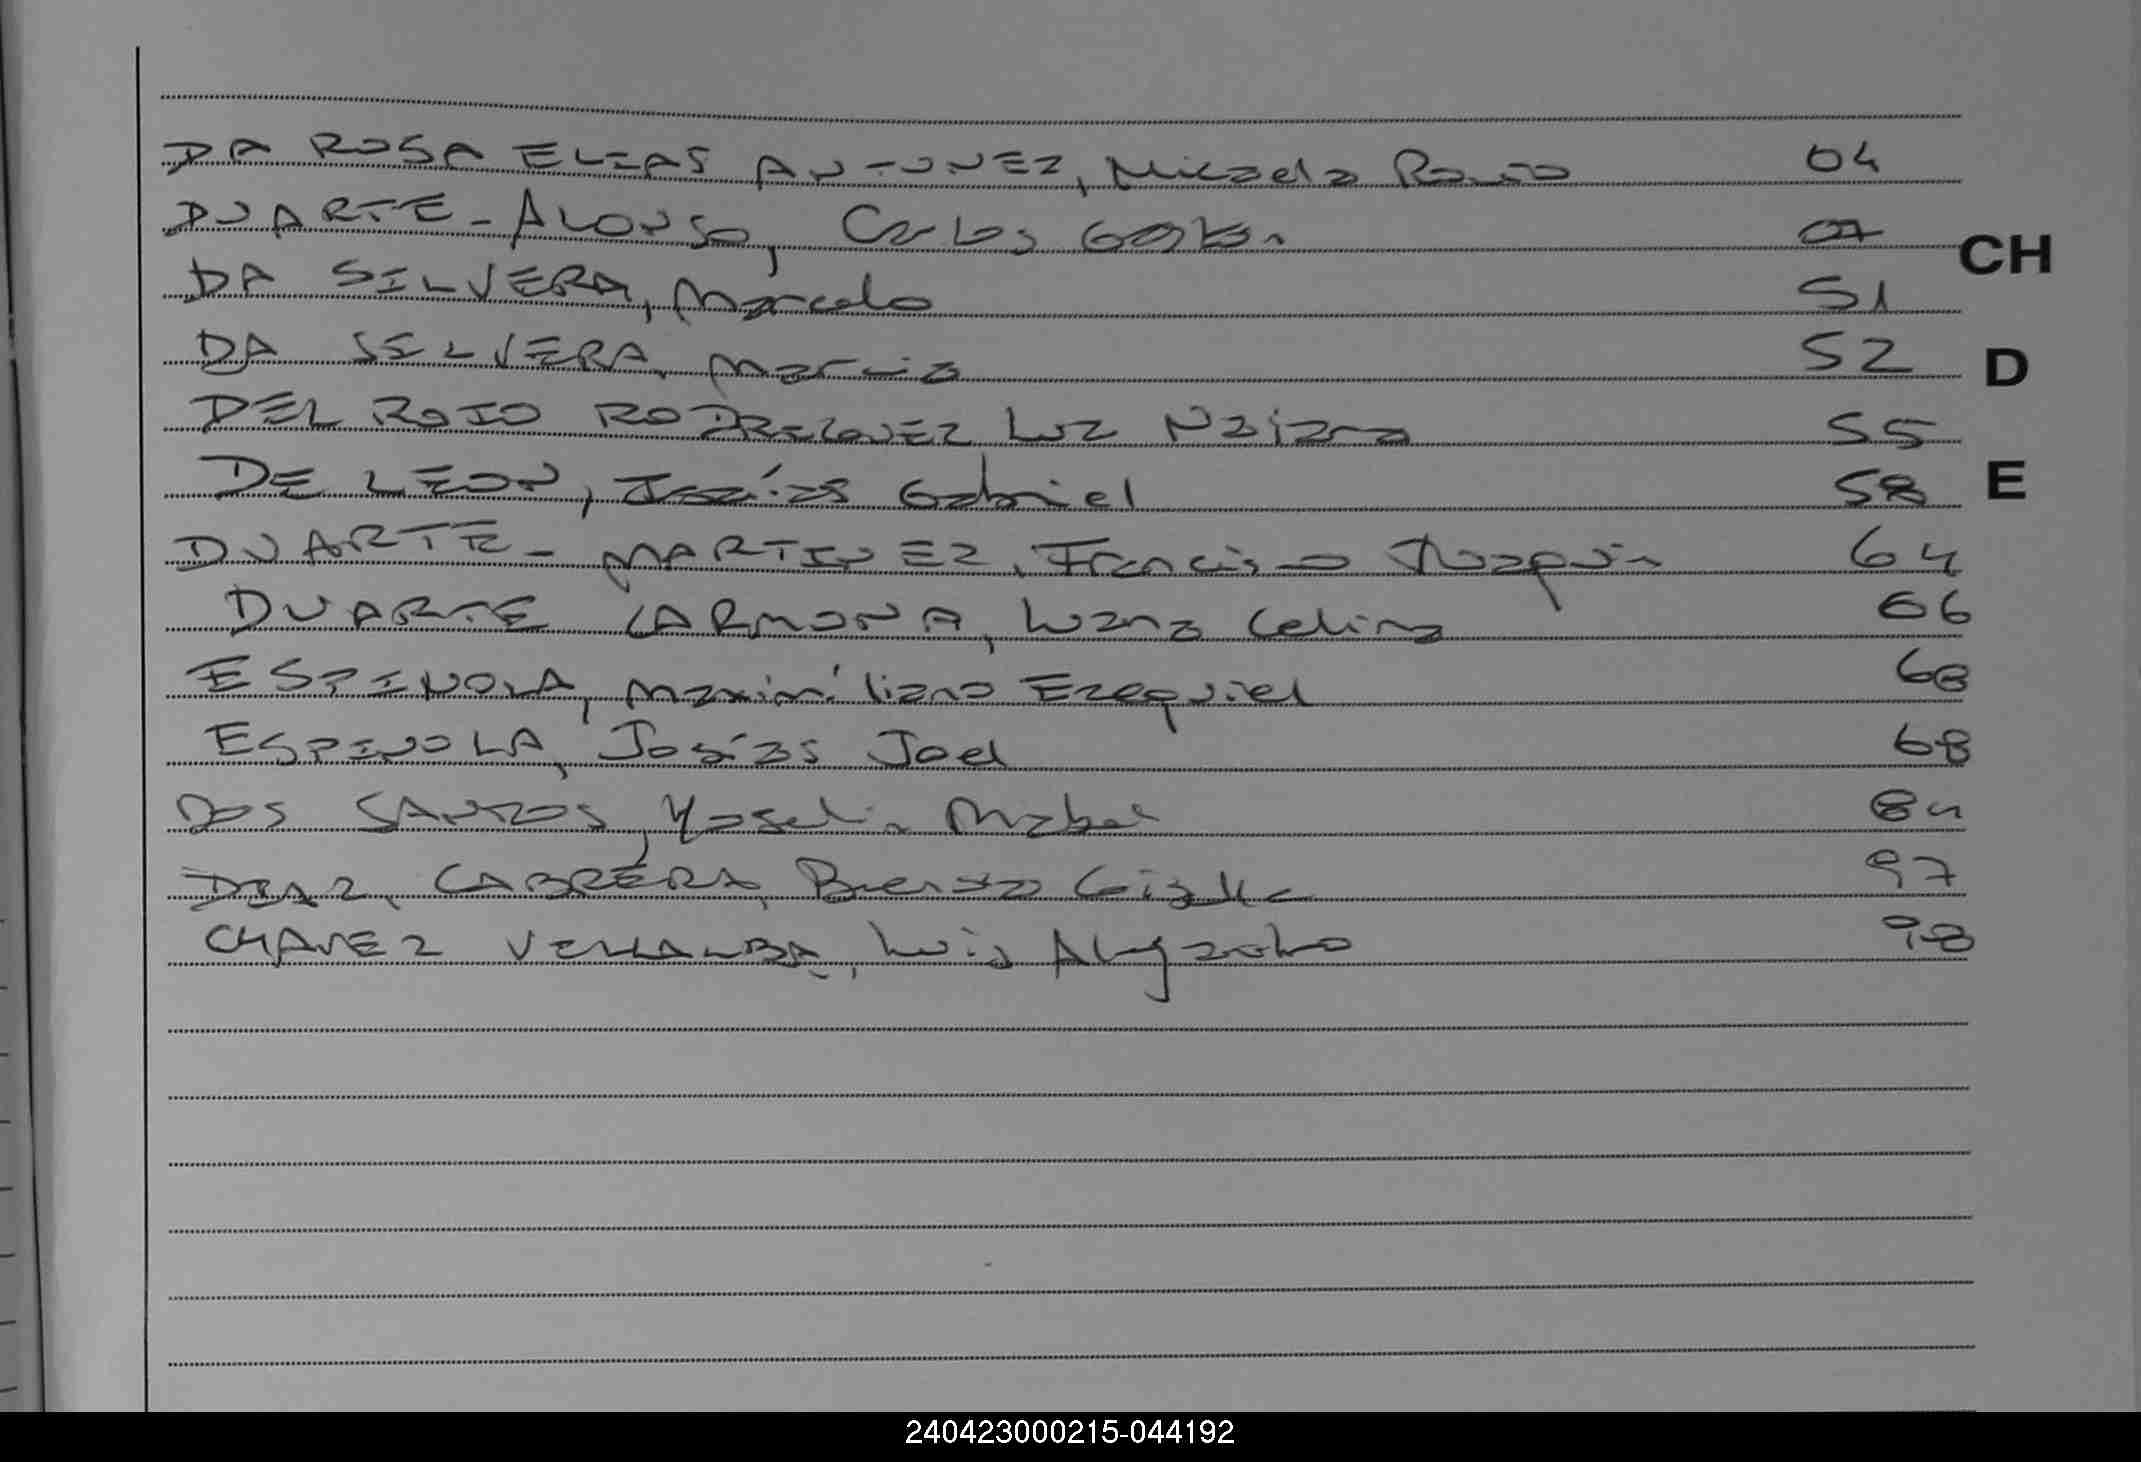 DA ROSA ELIAS ANTUNEZ, Micaela Rocio 04
DUARTE - ALONSO, Carlos Gastón 07
CH
DA SILVERA, Marcelo 51
DA SILVERA, Marcia 52
D
DEL ROIO RODRIGUEZ Luz Naiara 55
DE LEON, Isaías Gabriel 58
E
DUARTE - MARTINEZ, Francisco Joaquin 64
DUARTE CARMONA, Luana Celina 66
ESPINOLA, Maximiliano Ezequiel 68
ESPINOLA, Josías Joel 68
DOS SANTOS, Yoselin Mabel 84
DIAZ, CABRERA, Gizelle 97
CHAVEZ VILLALBA, Luis Alejandro 98
240423000215-044192